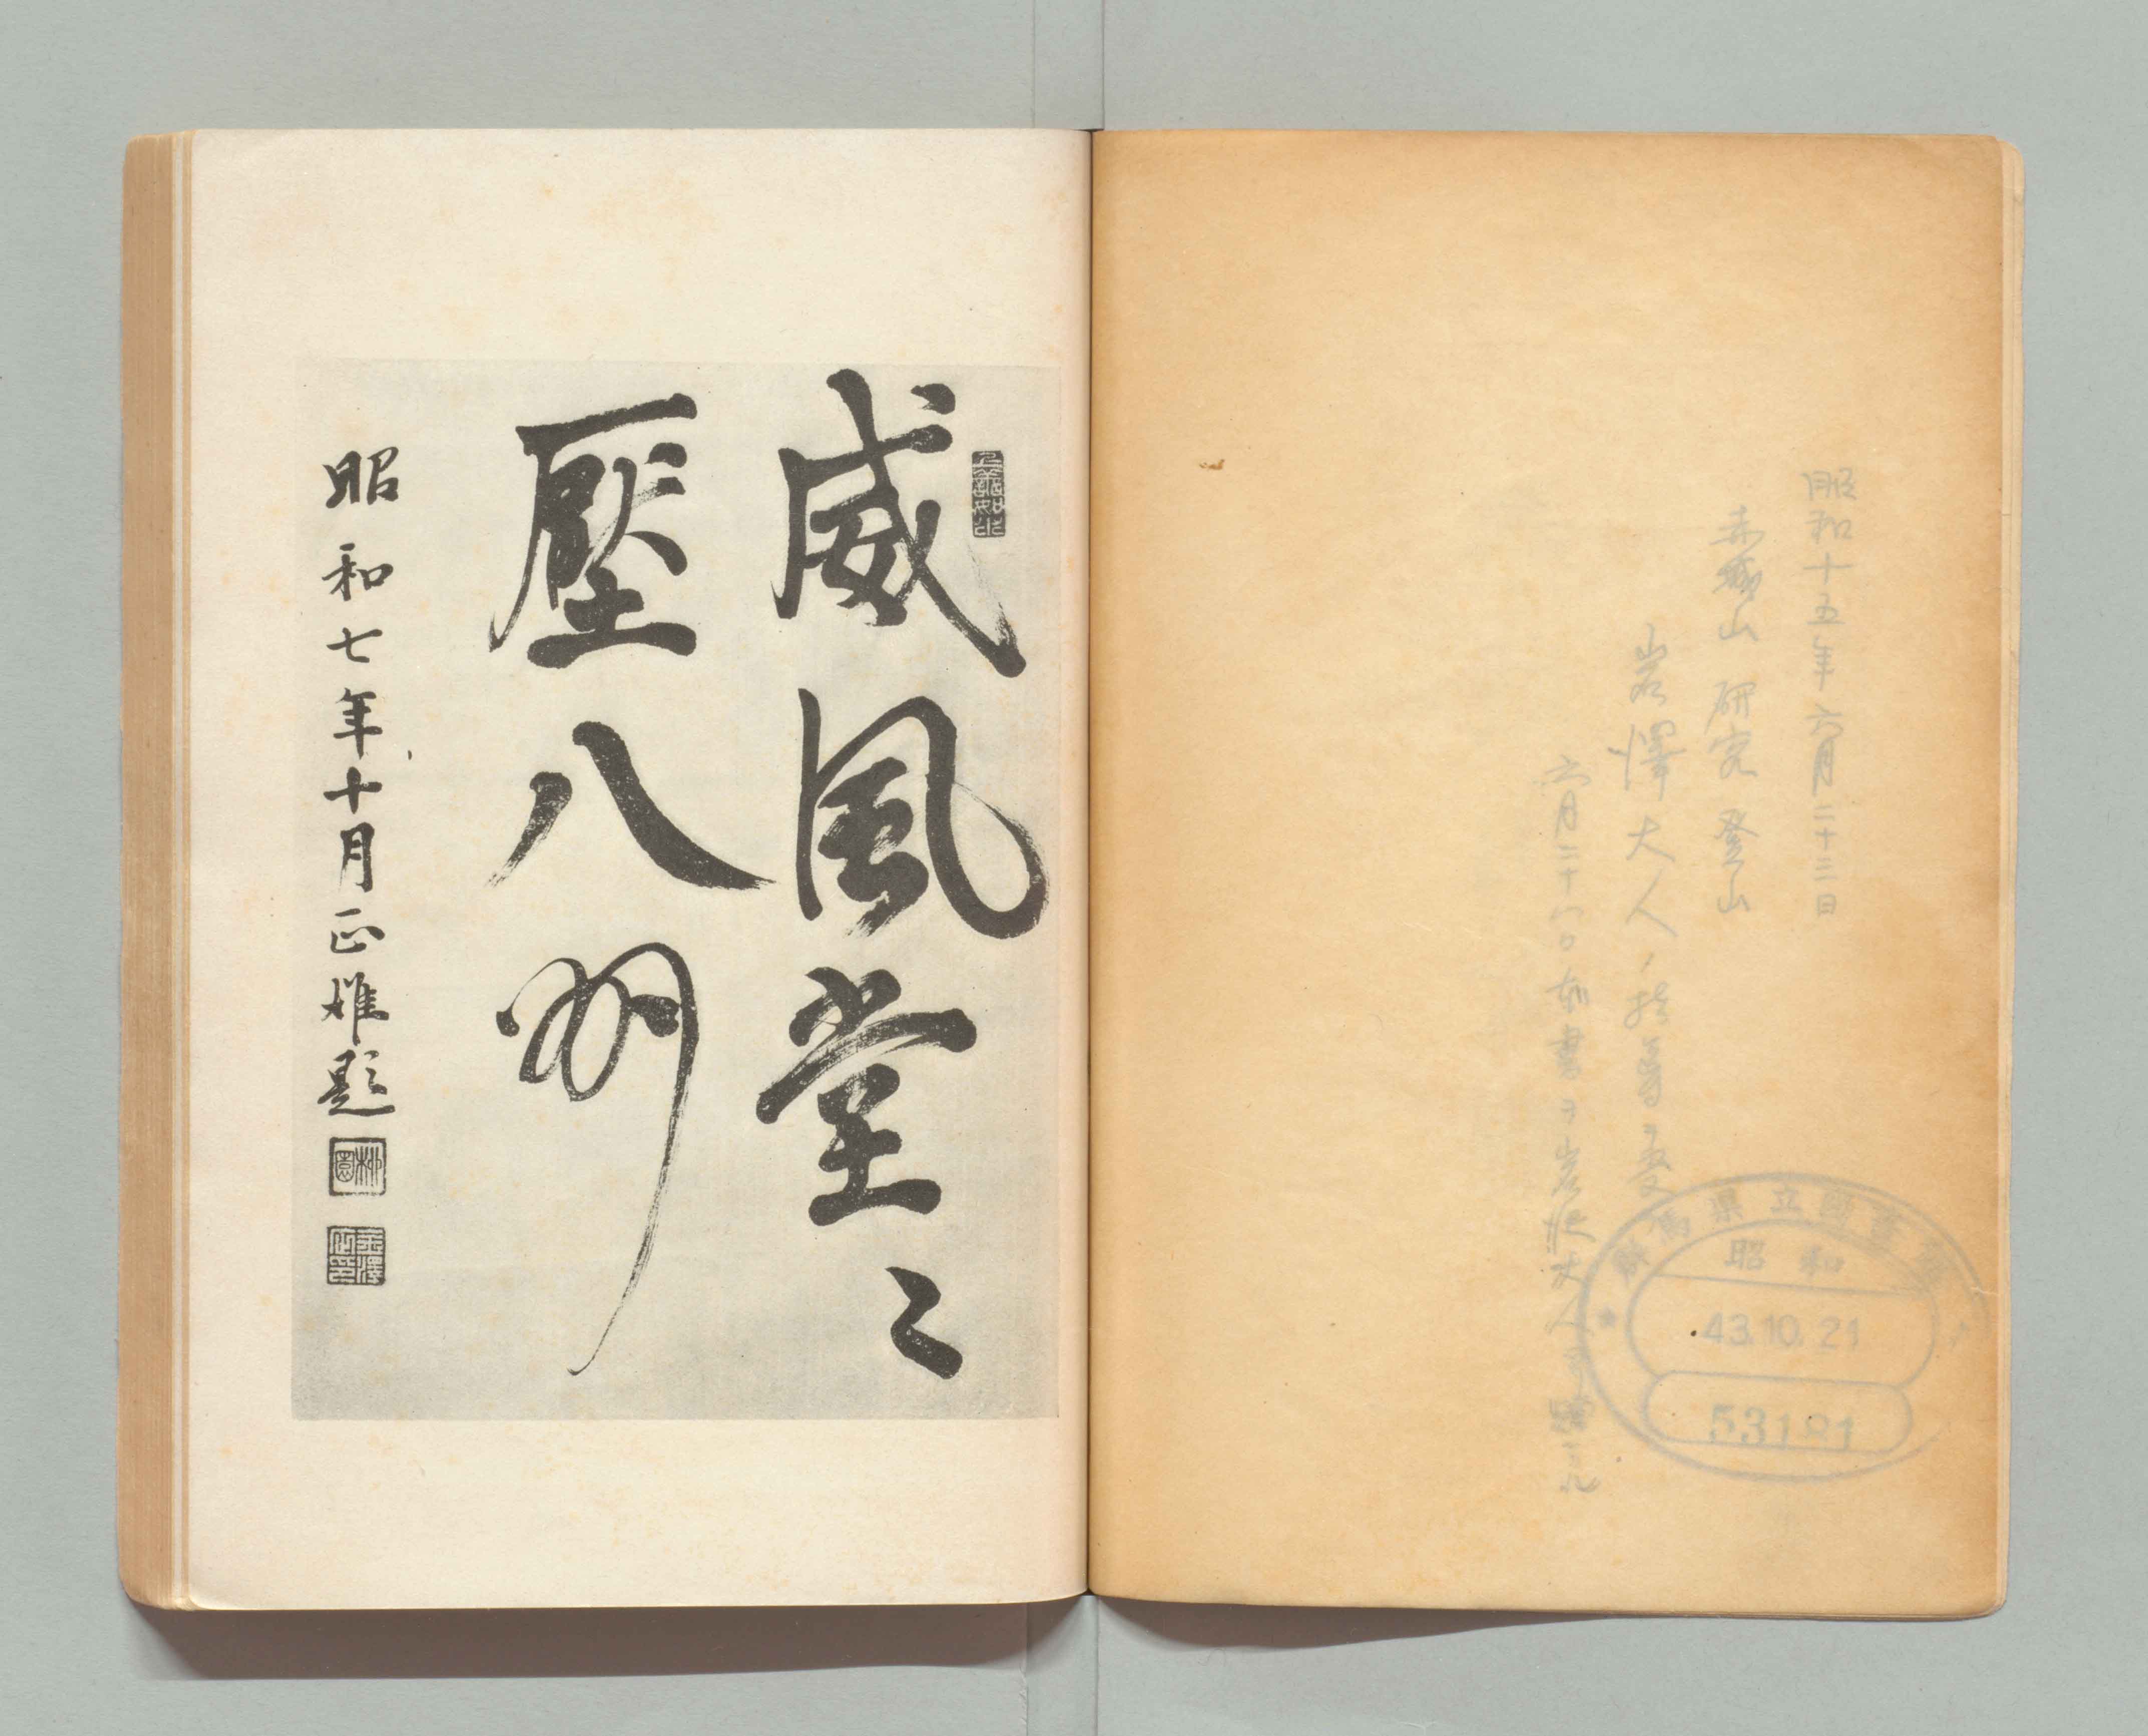 昭和十五年六月二十三日
赤城山研究登山
岩澤大人ノ指導ヲ受
六月二十八日本書ヲ岩
大人
群馬県立図書館
昭和
43.10.21
53191
上善如水
威風堂々
壓八州
昭和七年十月正雄題
柳園
金澤